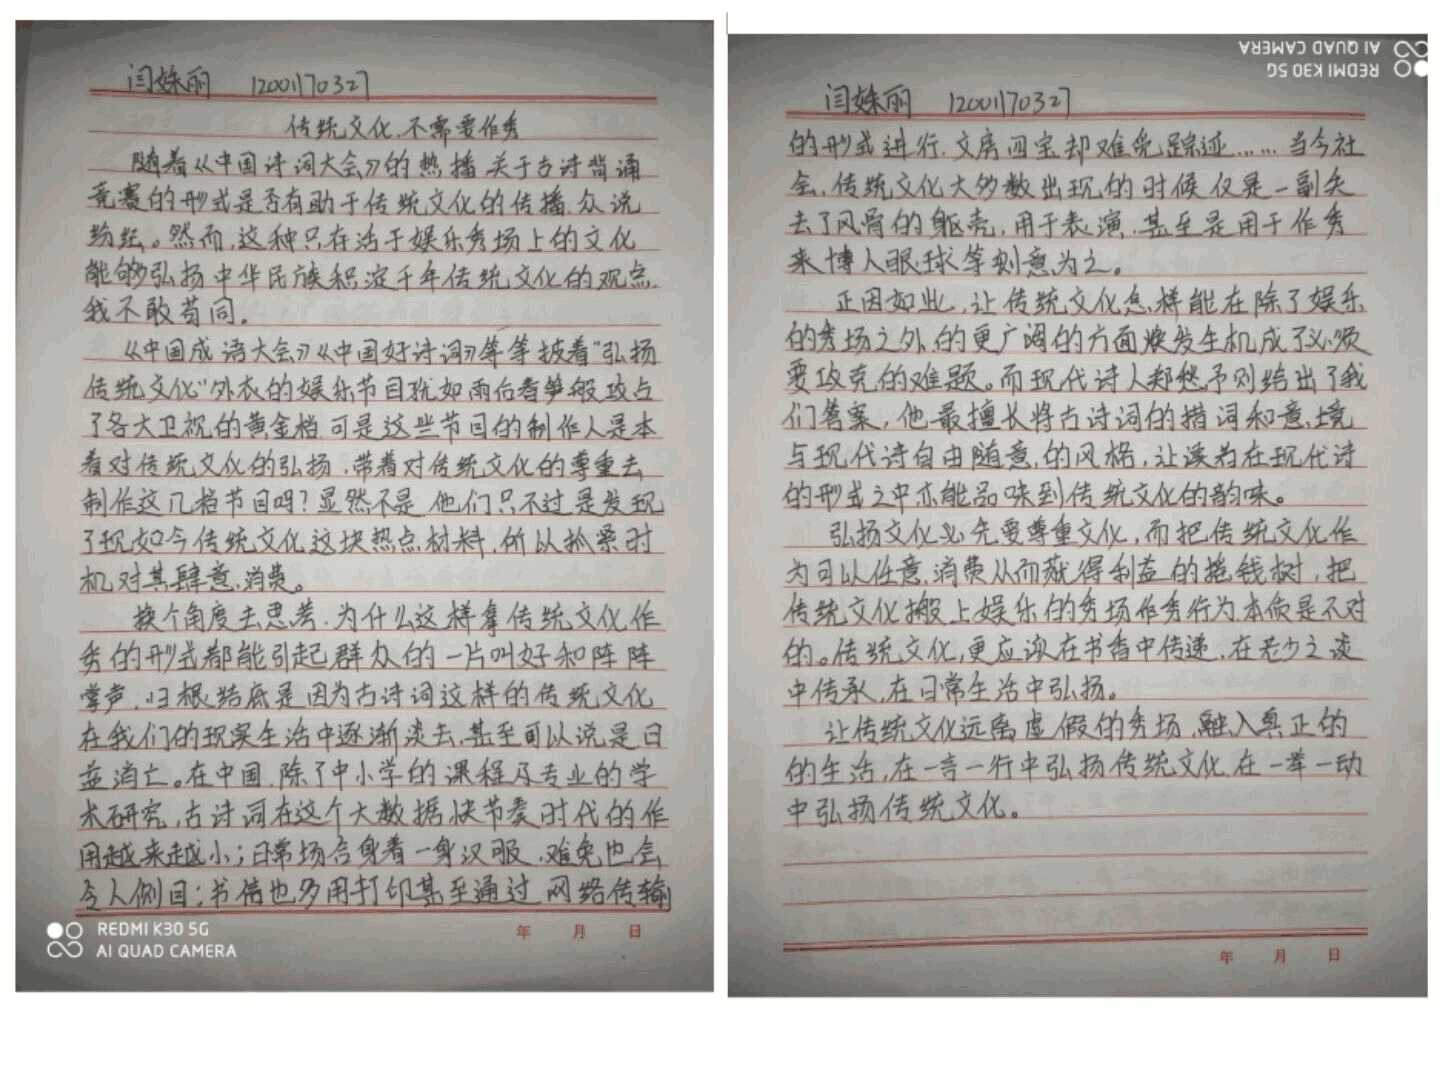 闫姝丽 1200170327
传统文化,不需要作秀
随着《中国诗词大会》的热播,关于古诗背诵
竞赛的形式是否有助于传统文化的传播,众说
纷纭。然而,这种只存活于娱乐秀场上的文化
能够弘扬中华民族积淀千年传统文化的观点,
我不敢苟同。
《中国成语大会》《中国好诗词》等等披着“弘扬
传统文化”外衣的娱乐节目犹如雨后春笋般攻占
了各大卫视的黄金档,可是这些节目的制作人是本
着对传统文化的弘扬,带着对传统文化的尊重去
制作这几档节目吗?显然不是,他们只不过是发现
了现如今传统文化这块热点材料,所以抓紧时
机对其肆意消费。
换个角度去思考,为什么这样拿传统文化作
秀的形式都能引起群众的一片叫好和阵阵
掌声,归根结底是因为古诗词这样的传统文化
在我们的现实生活中逐渐淡去,甚至可以说是日
益消亡。在中国,除了中小学的课程及专业的学
术研究,古诗词在这个大数据快节奏时代的作
用越来越小;日常场合身着一身汉服,难免也会
令人侧目;书信也多用打印甚至通过网络传输
年 月 日
REDMI K30 5G
AI QUAD CAMERA
REDMI K30 5G
AI QUAD CAMERA
闫姝丽 1200170327
的形式进行,文房四宝却难觅踪迹……当今社
会,传统文化大多数出现的时候仅是一副失
去了风骨的躯壳,用于表演,甚至是用于作秀
来博人眼球等刻意为之。
正因如此,让传统文化怎样能在除了娱乐
的秀场之外的更广阔的方面焕发生机成了必须
要攻克的难题。而现代诗人郑愁予则给出了我
们答案,他最擅长将古诗词的措词和意境
与现代诗自由随意的风格,让读者在现代诗
的形式之中亦能品味到传统文化的韵味。
弘扬文化必先要尊重文化,而把传统文化作
为可以任意消费从而获得利益的摇钱树,把
传统文化搬上娱乐的秀场作秀行为本质是不对
的。传统文化,更应该在书香中传递,在老少之谈
中传承,在日常生活中弘扬。
让传统文化远离虚假的秀场,融入真正的
的生活,在一言一行中弘扬传统文化,在一举一动
中弘扬传统文化。
年 月 日